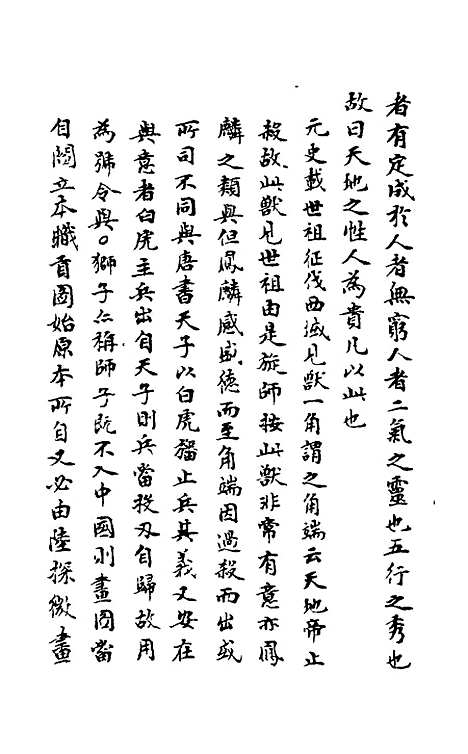 者有定成於人者無窮人者二氣之靈也五行之秀也
故曰天地之性人為貴凡以此也
元史載世祖征伐西域見獸一角謂之角端云天地帝止
殺故此獸見世祖由是旋師按此獸非常有意亦鳳
麟之類與但鳳麟感盛德而至角端因過殺而出或
所司不同與唐書天子以白虎幡止兵其義又安在
與意者白虎主兵出自天子則兵當投刃自歸故用
為號令與○獅子亦稱師子既不入中國則畫圖當
自閻立本職貢圖始原本所自又必由陸探微畫